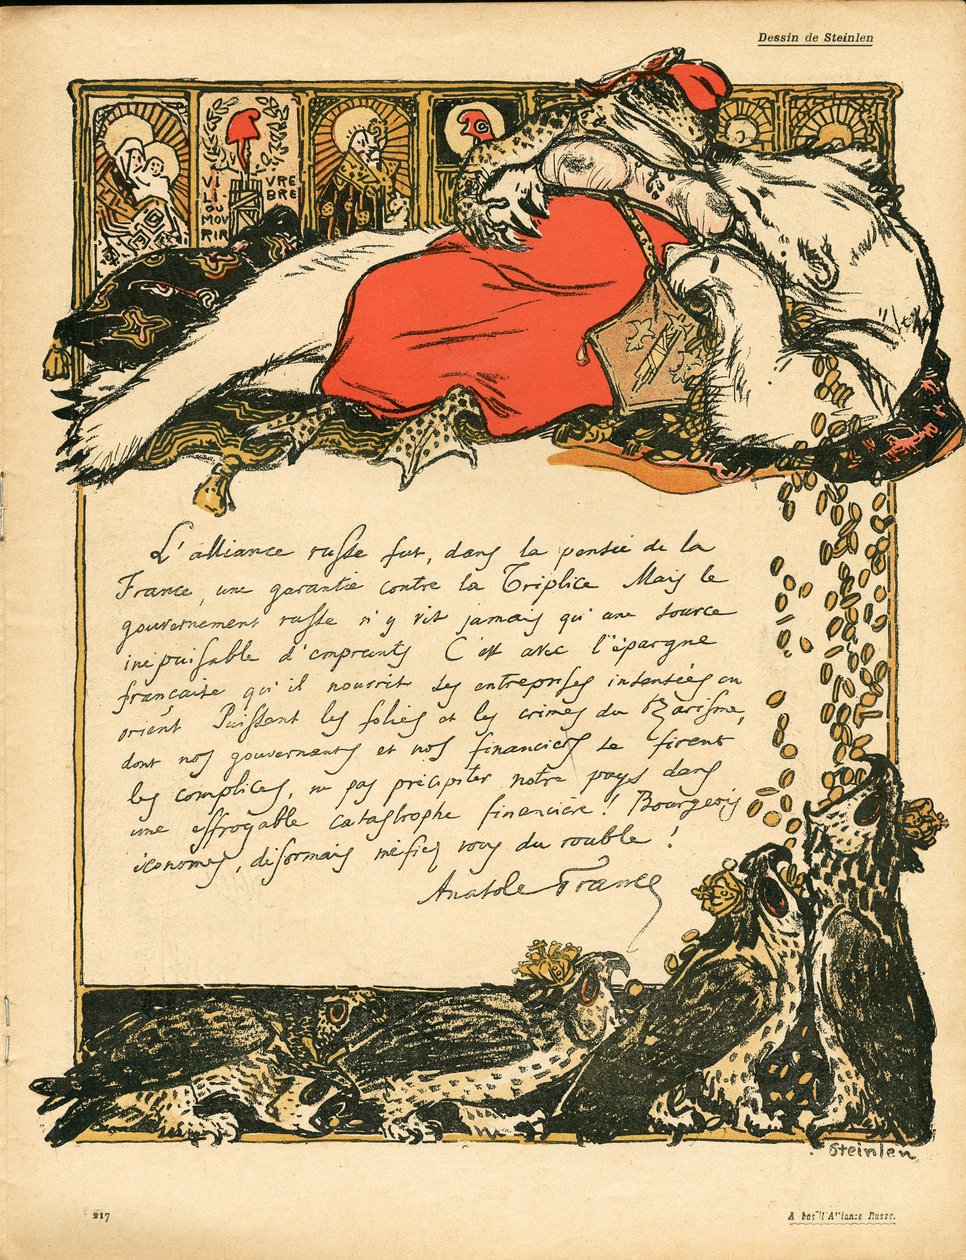 Dessin de Steinlen
VI VRE
LI BRE
OU
MOU
RIR
L'alliance russe fut, dans la pensée de la
France, une garantie contre la Triplice Mais le
gouvernement russe n'y vit jamais qu'une source
inépuisable d'emprunts C'est avec l'épargne
française qu'il nourrit ses entreprises insensées en
orient Puissent les folies et les crimes du tzarisme,
dont nos gouvernants et nos financiers se firent
les complices, ne pas précipiter notre pays dans
une effroyable catastrophe financière ! Bourgeois
économes, désormais méfiez vous du rouble !
Anatole France
Steinlen
217
A bas l'Alliance Russe.